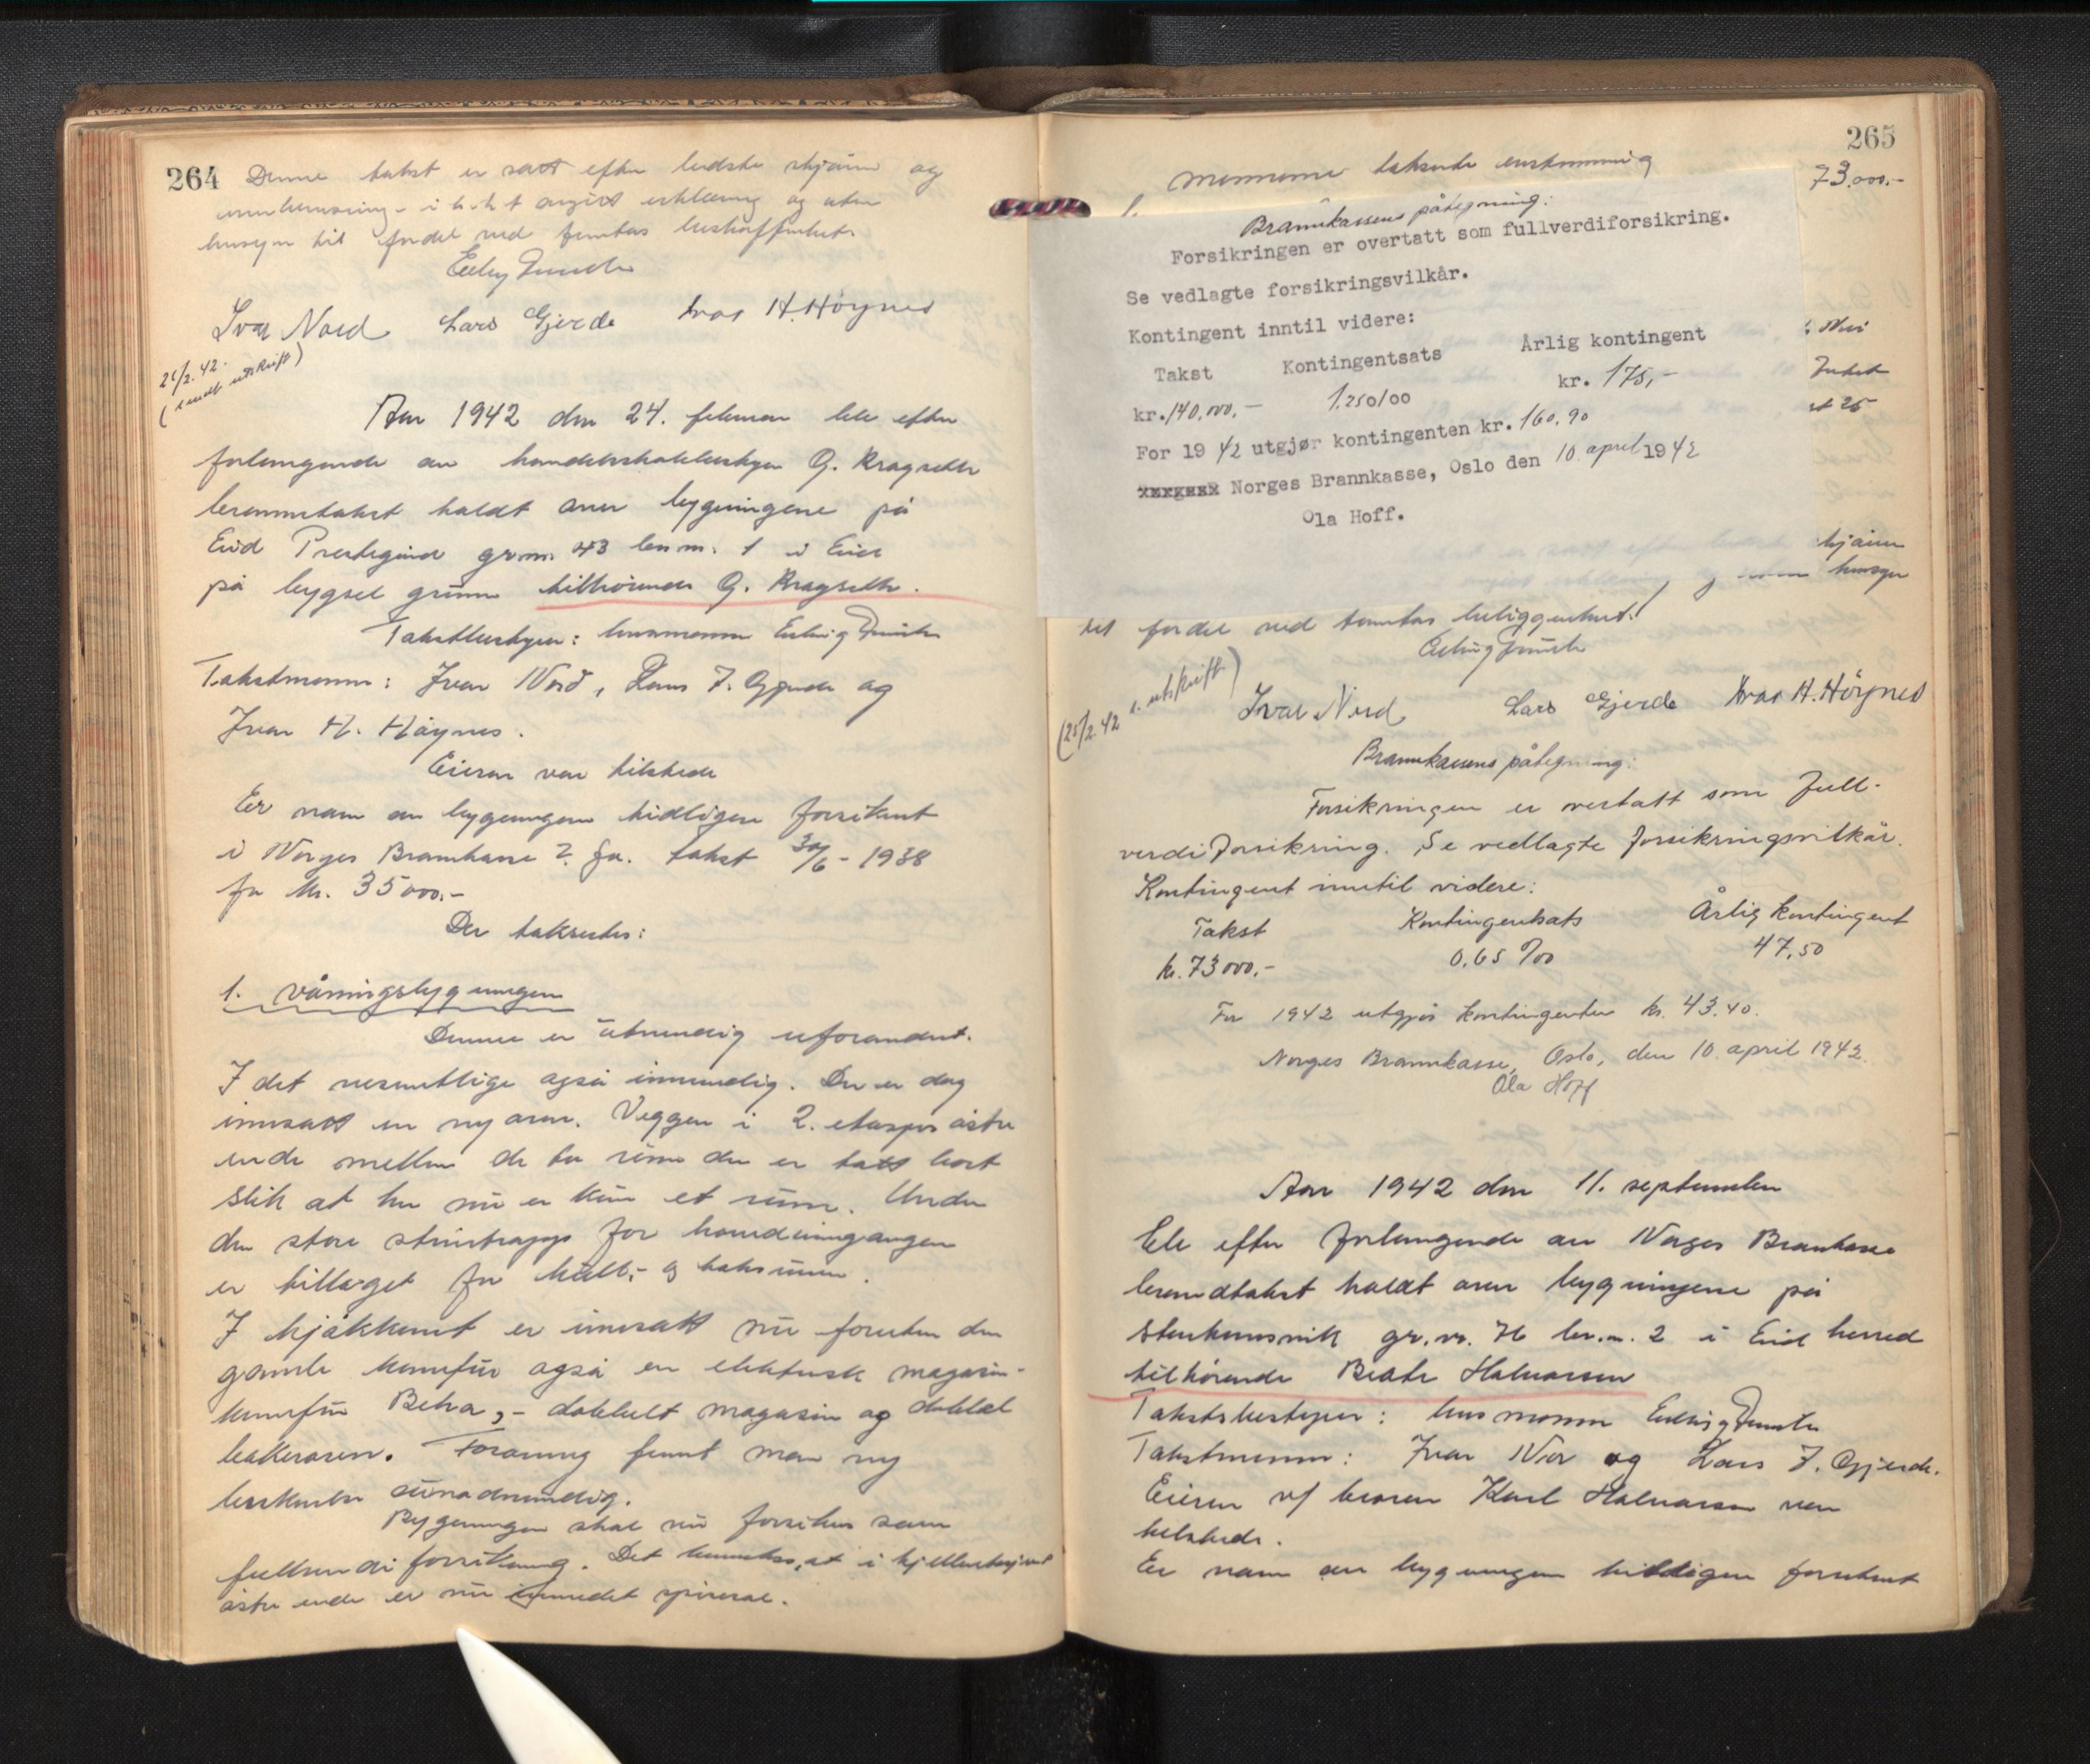 264
Denne takst er satt efter beste skjønn og
overbevisning - i h.h.t avgitt erklæring og uten
hensyn til fordel ved tomtas beskaffenhet.
Ivar Nord Lars Gjerde Ivar H. Höynes
21/2.42.
(sendt utskrift)
Aar 1942 den 24. februar ble efter
forlangende av handelsbestyrer O. Kragseth
branntakst holdt over bygningene på
Eid Prestegård gr.nr. 43 br.nr. 1 i Eid
på bygsel grunn tilhørende O. Kragseth.
Takstbestyrer: lensmann
Takstmenn: Ivar Nord, Lars J. Gjerde og
Ivar H. Höynes.
Eieren var tilstede
Er noen av bygningene tidligere forsikret
i Norges Brannkasse? Ja. takst 30/6 - 1938
for kr. 35000.-
Der takseres:
1. Våningsbygningen
Denne er utvendig uforandret.
I det vesentlige også innvendig. Der er dog
innsatt en ny ovn. Veggen i 2. etasjes østre
ende mellem de to rum der er tatt bort
slik at her nu er kun et rum. Under
den store steintrapp for hovedinngangen
er tillaget for kull- og koksrum.
I kjøkkenet er innsatt nu foruten den
gamle komfur også en elektrisk magasin-
komfur Beha, - dobbelt magasin og dobbel
bakerovn. Forøvrig fennt man ny
Bygningen skal nu forsikres som
fullverdiforsikring. Det bemerkes, at i kjelleretasjens
østre ende er nu innredet spiserom.
265
mennene takserte enstemmig
73.000.-
1.
Brannkassens påtegning:
Forsikringen er overtatt som fullverdiforsikring.
Se vedlagte forsikringsvilkår.
Kontingent inntil videre:
Takst Kontingentsats Årlig kontingent
kr. 140.000,- 1,25o/oo kr. 175,-
For 19 42 utgjør kontingenten kr. 160,90
Norges Brannkasse, Oslo den 10. april 1942
Ola Hoff.
skjønn
hensyn
til fordel ved tomtas beliggenhet.
(25/2.42 s. utskrift)
Ivar Nord Lars Gjerde Ivar H. Höynes
Brannkassens påtegning:
Forsikringen er overtatt som full-
verdiforsikring. Se vedlagte forsikringsvilkår.
Kontingent inntil videre:
Takst Kontingentsats Årlig kontingent
kr. 73000.- 0,65 ‰ 47,50
For 1942 utgjør kontingenten kr. 43.40.
Norges Brannkasse, Oslo, den 10. april 1942.
Ola Hoff
Aar 1942 den 11. september
ble efter forlangende av Norges Brannkasse
branntakst holdt over bygningene på
gr.nr. 76 br.nr. 2 i Eid herred
tilhørende Beate Halvorsen
Takstbestyrer: lensmann
Takstmenn: Ivar Nor og Lars J. Gjerde.
Eieren v/ broren Karl Halvorsen var
tilstede.
Er noen av bygningen tidligere forsikret